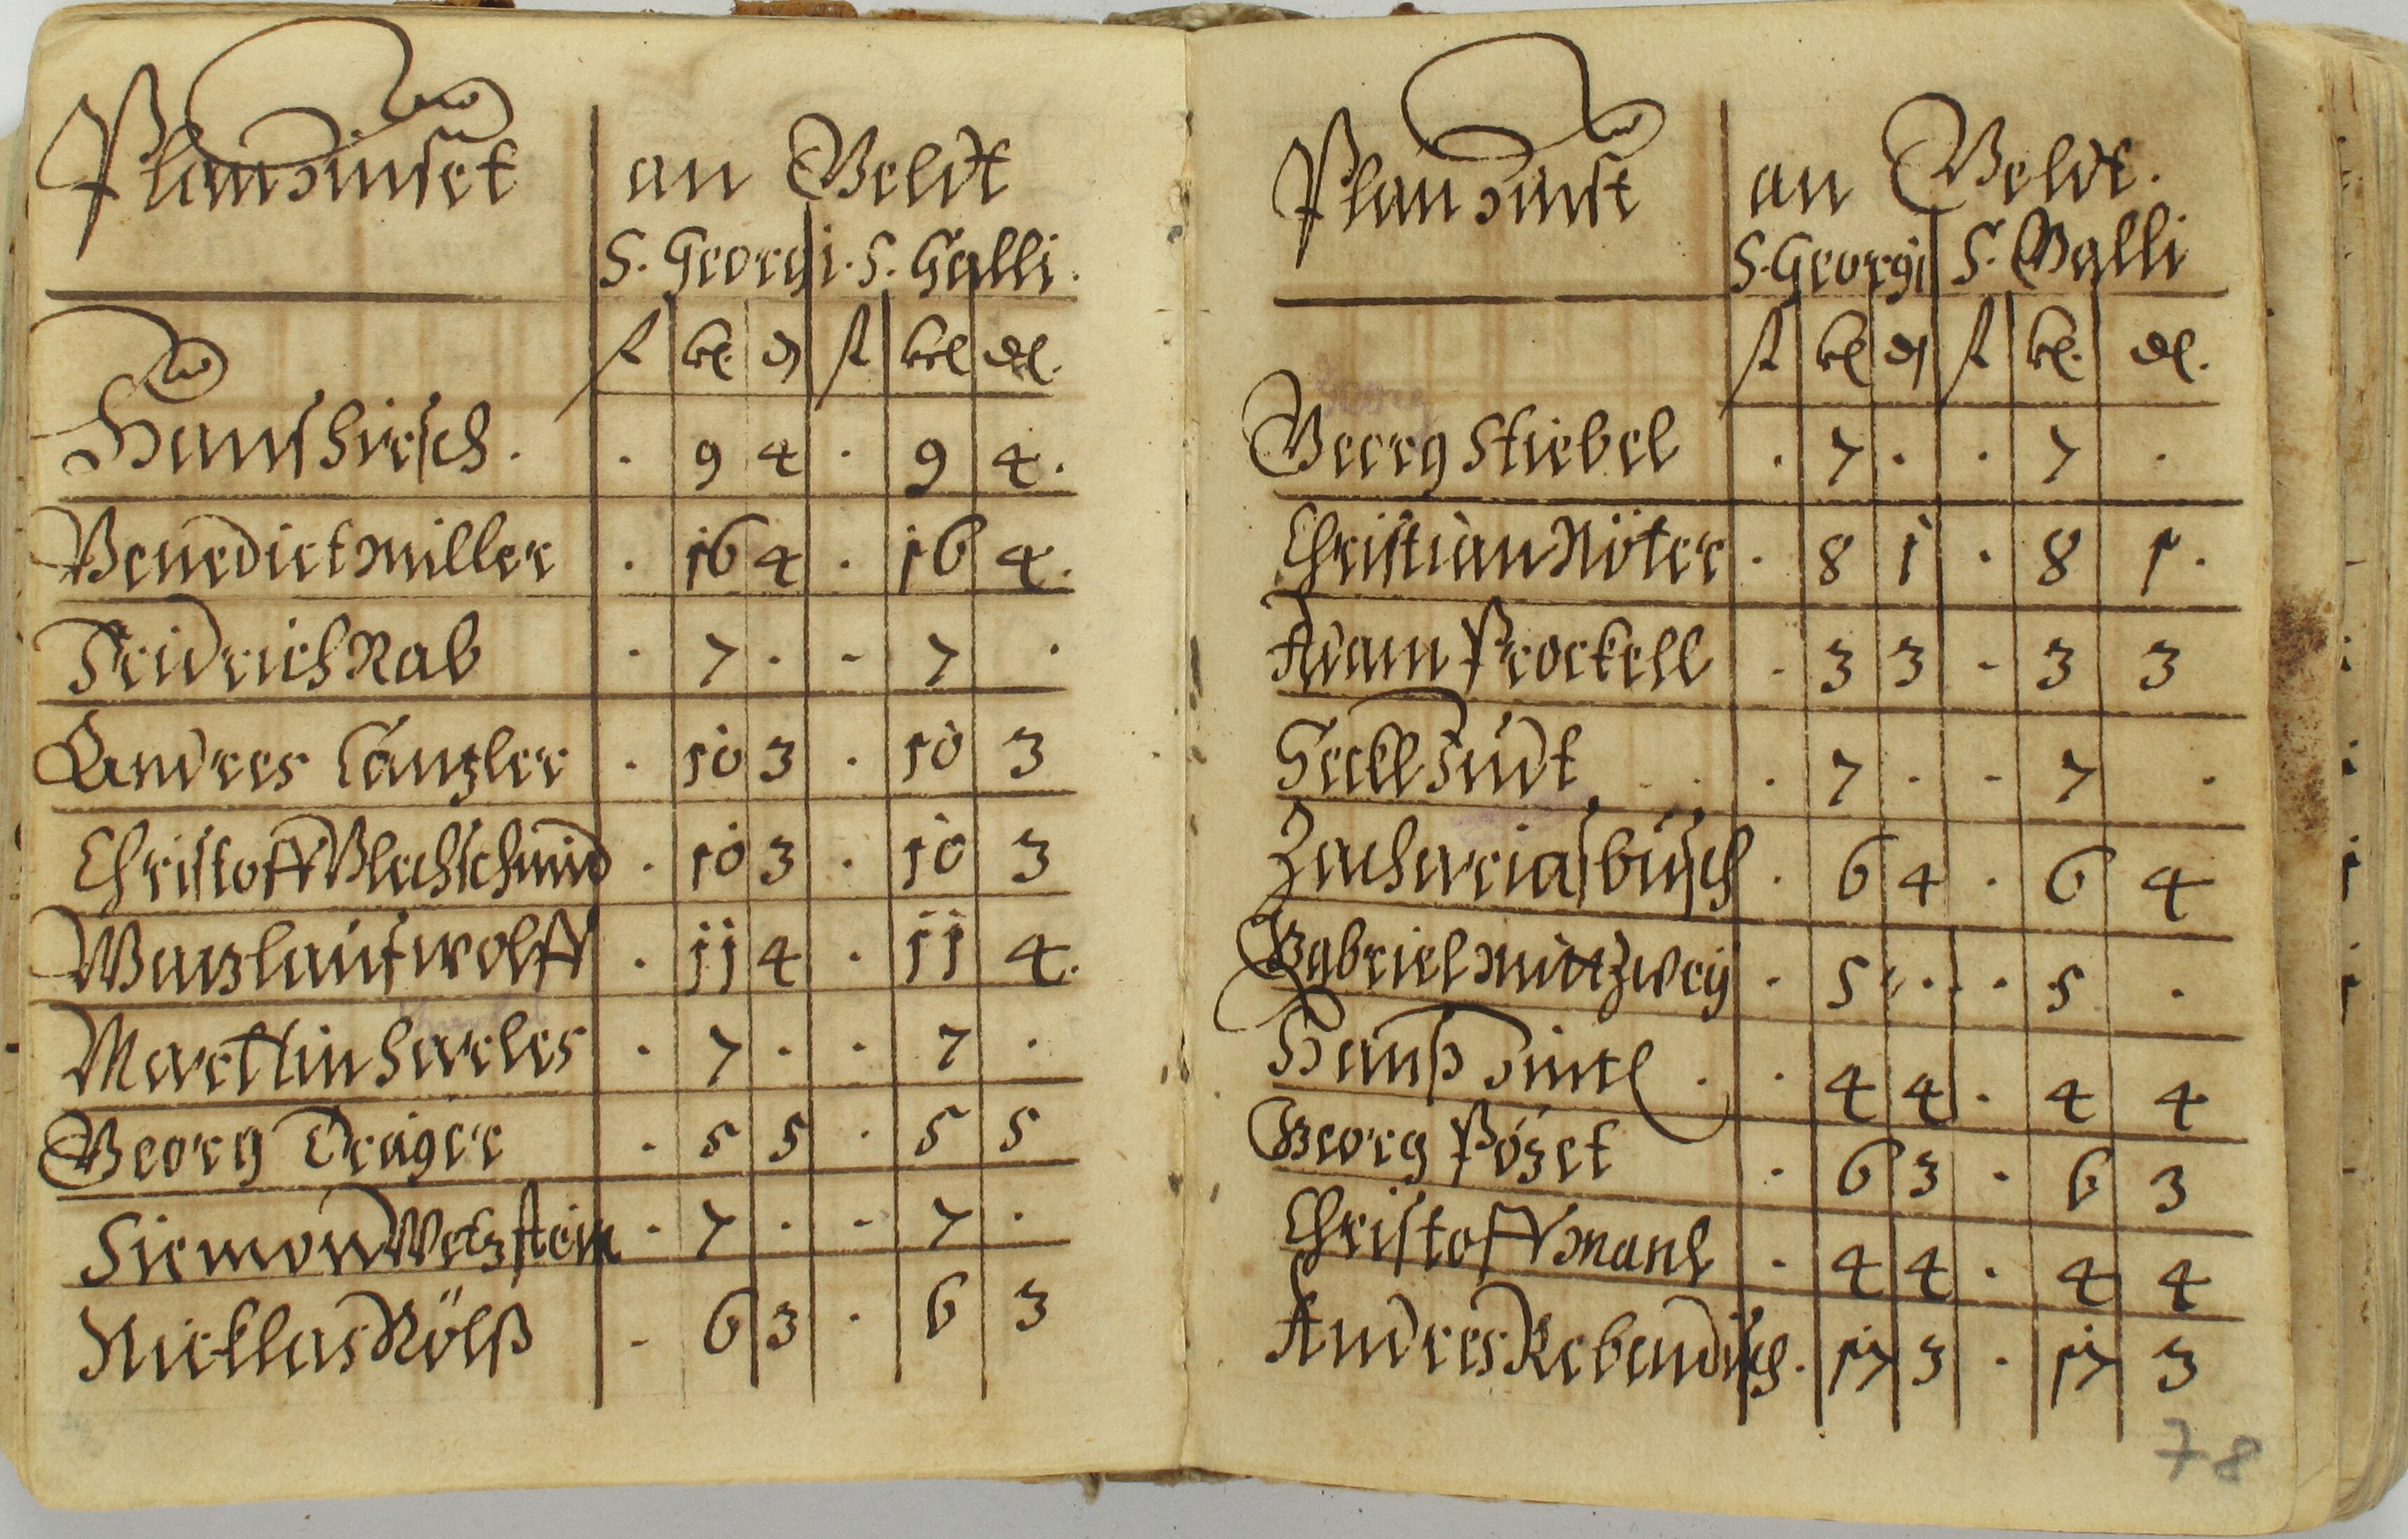 Plandünset
an Geldt
S. Georgi. S. Galli.
fl kl. d fl krl dl.
Hanß hirsch. . 9 4 . 9 4.
Benedict miller . 16 4 . 16 4.
Fridrich Rab . 7 . . 7 .
Andres Cäntzler . 10 3 . 10 3
Christoff Blechschmid . 10 3 . 10 3
Wanzlauf wolff . 11 4 . 11 4.
Marttin harles . 7 . . 7 .
Georg Träger . 5 5 . 5 5
Siemon Wetzstein . 7 . . 7 .
Nicklas Röls . 6 3 . 6 3
Plandünst
an Geldt.
S. Georgi S. Galli
fl kl d fl kl. dl.
Georg Stiebel . 7 . . 7 .
Christian Röter . 8 1 . 8 1.
Adam Prockell . 3 3 . 3 3
. 7 . . 7 .
Zacharias büsch . 6 4 . 6 4
Gabriel mittzweÿ . 5 . . 5 .
Hanß . . 4 4 . 4 4
Georg Pözet . 6 3 . 6 3
Christoff manl . 4 4 . 4 4
Andres Rebendisch. 17 3 . 17 3
78